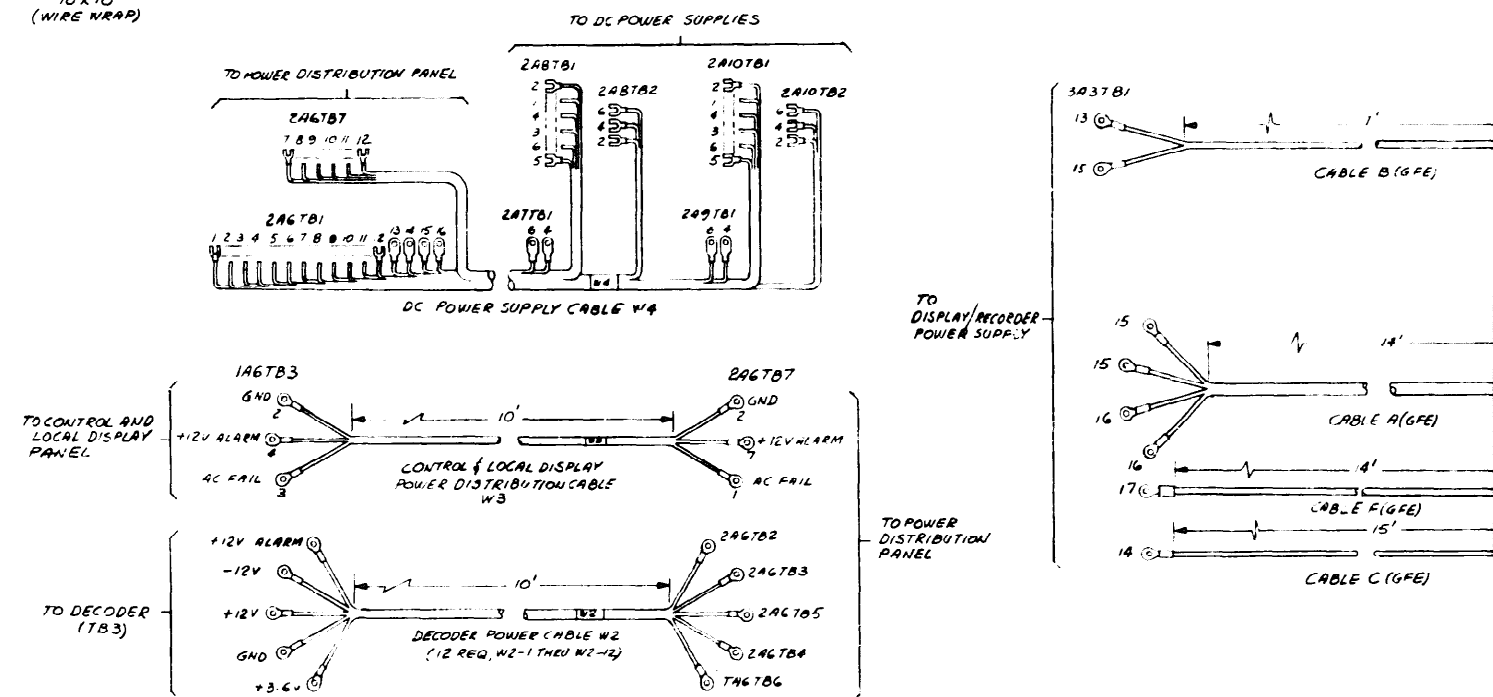 10 X 10
(WIRE WRAP)
TO DC POWER SUPPLIES
TO POWER DISTRIBUTION PANEL
2A6TB7
7 8 9 10 11 12
2A8TB1
2
1
4
3
6
5
2A8TB2
6
4
2
2A10TB1
2
1
4
3
6
5
2A10TB2
6
4
2
2A6TB1
1 2 3 4 5 6 7 8 9 10 11 2 13 4 15 16
2A7TB1
6 4
2A9TB1
6 4
W4
DC POWER SUPPLY CABLE W4
TO CONTROL AND
LOCAL DISPLAY
PANEL
1A6TB3
GND
2
+12V ALARM
4
AC FAIL
3
10'
CONTROL & LOCAL DISPLAY
POWER DISTRIBUTION CABLE
W3
2A6TB7
GND
2
+12V ALARM
7
AC FAIL
1
TO DECODER
(TB3)
+12V ALARM
-12V
+12V
GND
+3.6V
10'
DECODER POWER CABLE W2
(12 REQ, W2-1 THRU W2-12)
2A6TB2
2A6TB3
2A6TB5
2A6TB4
TA6TB6
TO POWER
DISTRIBUTION
PANEL
TO
DISPLAY/RECORDER
POWER SUPPLY
3A3TB1
13
15
1'
CABLE B (GFE)
15
15
16
16
14'
CABLE A (GFE)
17
14'
CABLE F (GFE)
14
15'
CABLE C (GFE)